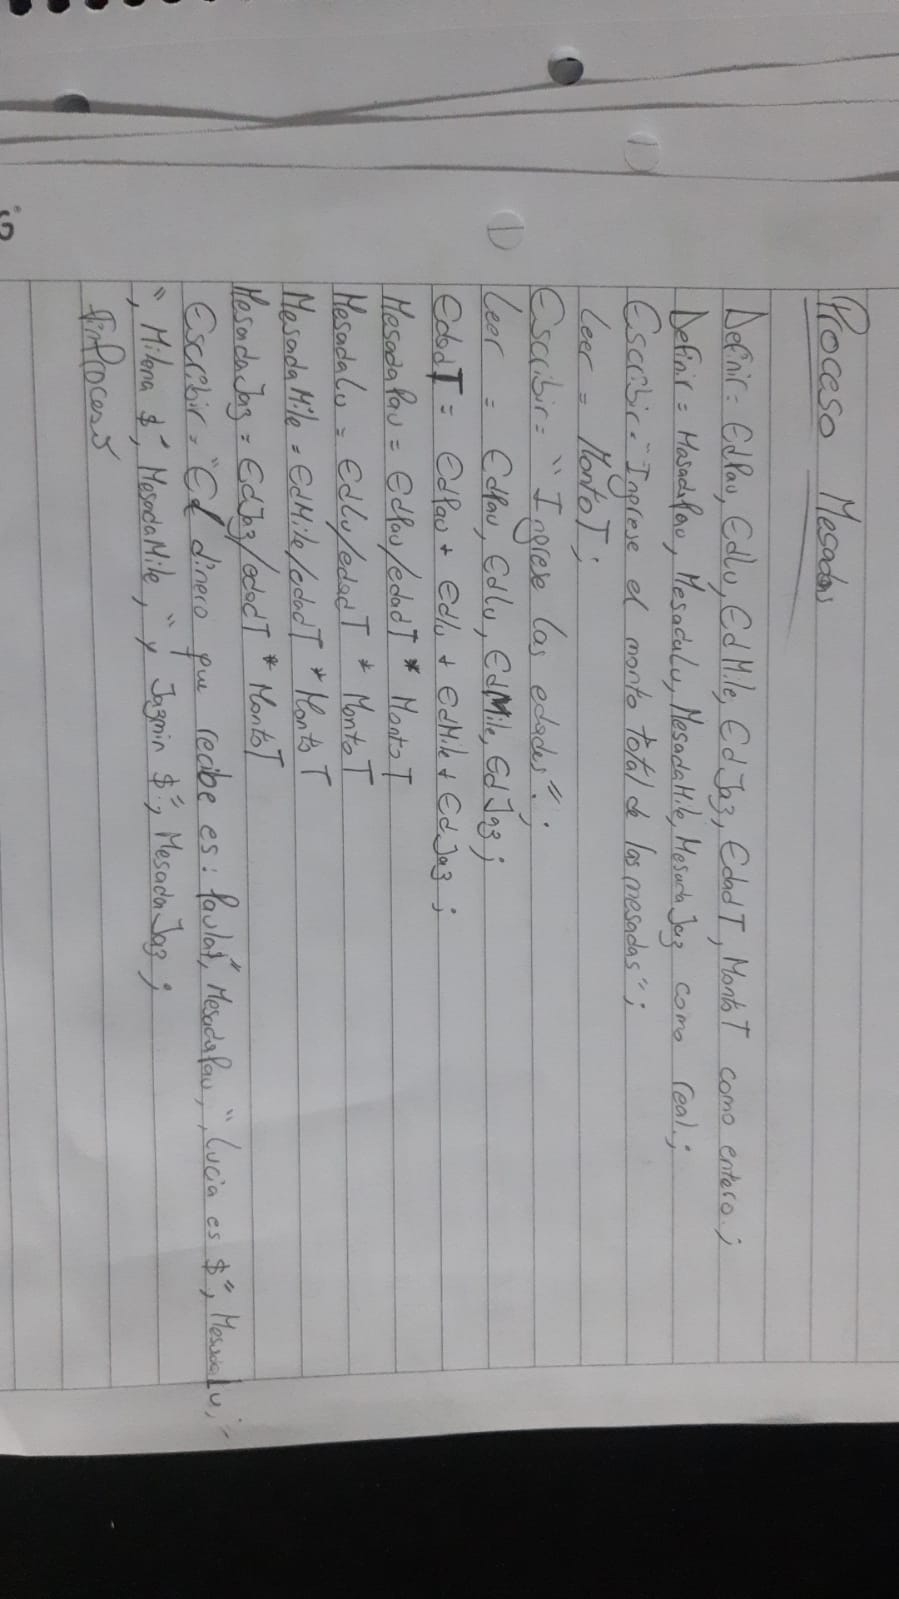 Proceso Mesadas
Definir = EdPau, EdLu, EdMile, EdJaz, EdadT, MontoT como entero.;
Definir = MesadaPau, MesadaLu, MesadaMile, MesadaJaz como real.;
Escribir = "Ingrese el monto total de las mesadas";
Leer = MontoT;
Escribir = "Ingrese las edades".;
Leer = EdPau, EdLu, EdMile, EdJaz;
EdadT = EdPau + EdLu + EdMile + EdJaz;
MesadaPau = EdPau/edadT * MontoT
MesadaLu = EdLu/edadT * MontoT
MesadaMile = EdMile/edadT * MontoT
MesadaJaz = EdJaz/edadT * MontoT
Escribir = "El dinero que recibe es: Paula$", MesadaPau, ", Lucia es $", MesadaLu;-
", Milena $", MesadaMile, " y Jazmin $", MesadaJaz;
FinProceso